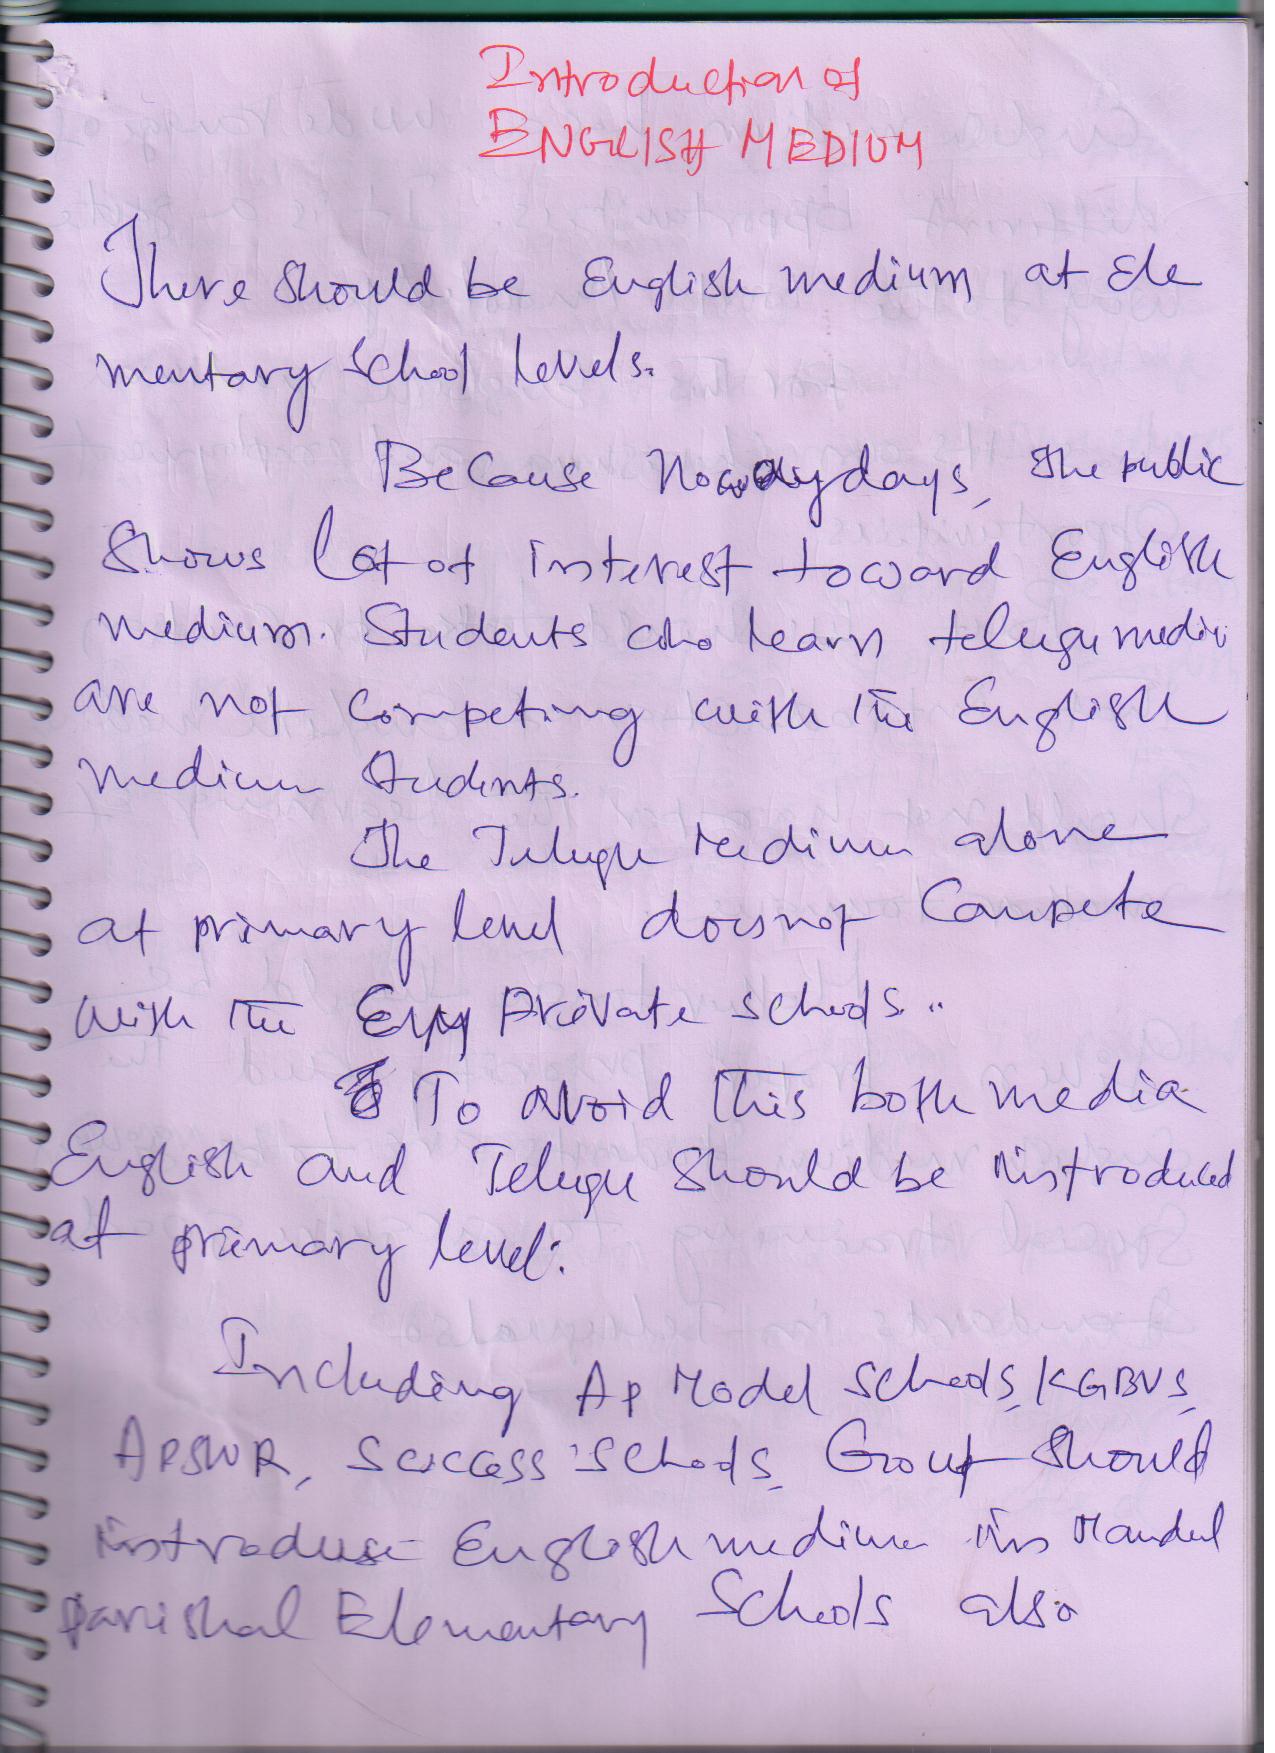 Introduction of
ENGLISH MEDIUM
There should be English medium at Ele
mentary School levels.
Because Nowadays, the public
shows lot of interest toward English
medium. Students who learn telugu mediu
are not competing with the English
medium Students.
The Telugu Medium alone
at primary level doesnot Compete
with the Private schools..
To avoid this both media
English and Telugu should be introduced
at primary level.
Including AP Model Schools, KGBVS,
APSWR, Success Schools, Group should
introduse English medium in Mandal
parishal Elementary Schools also